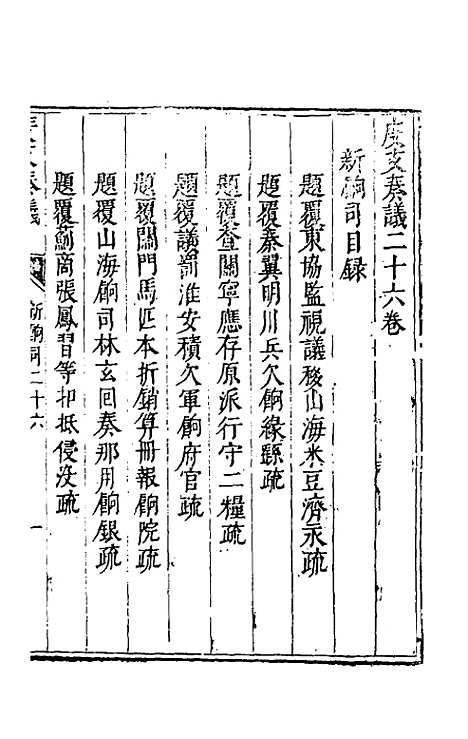 度支奏議二十六卷
新餉司目録
題覆東協監視議稜山海米豆濟永疏
題覆秦翼明川兵欠餉緣繇疏
題覆查關寧應存原派行守二糧疏
題覆議罰淮安積欠軍餉府官疏
題覆關門馬匹本折銷算冊報餉院疏
題覆山海餉司林玄回奏那用餉銀疏
題覆薊商張鳳習等扣抵侵没疏
度支奏議
新餉司二十六
一